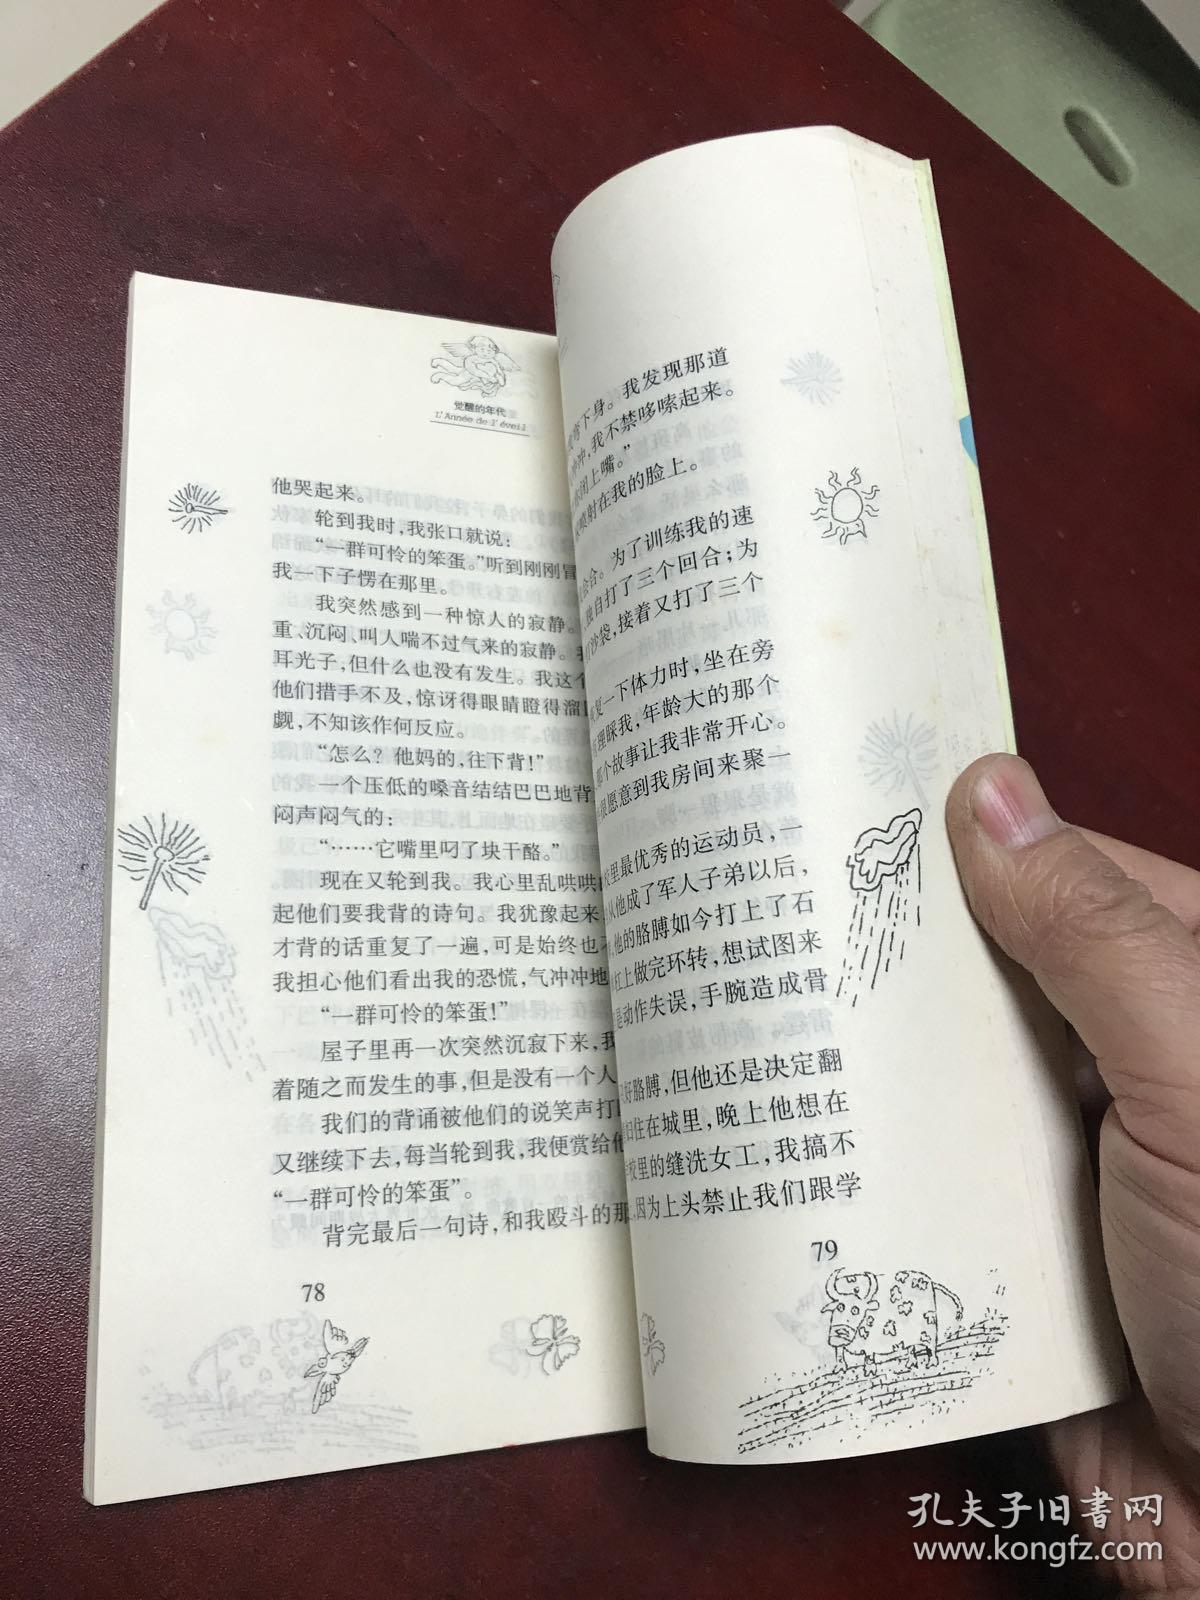 觉醒的年代
L'Année de l'éveil
他哭起来。
轮到我时,我张口就说:
“一群可怜的笨蛋。”听到刚刚冒
我一下子愣在那里。
我突然感到一种惊人的寂静。
重、沉闷、叫人喘不过气来的寂静。
耳光子,但什么也没有发生。我这个
他们措手不及,惊讶得眼睛瞪得溜
觑,不知该作何反应。
“怎么?他妈的,往下背!”
一个压低的嗓音结结巴巴地背
闷声闷气的:
“……它嘴里叼了块干酪。”
现在又轮到我。我心里乱哄哄
起他们要我背的诗句。我犹豫起来
才背的话重复了一遍,可是始终也
我担心他们看出我的恐慌,气冲冲地
“一群可怜的笨蛋!”
屋子里再一次突然沉寂下来,我
着随之而发生的事,但是没有一个人
我们的背诵被他们的说笑声打
又继续下去,每当轮到我,我便赏给他
“一群可怜的笨蛋”。
背完最后一句诗,和我殴斗的那
78
弯下身。我发现那道
冲,我不禁哆嗦起来。
闭上嘴。”
喷射在我的脸上。
会合。为了训练我的速
独自打了三个回合;为
沙袋,接着又打了三个
复一下体力时,坐在旁
理睬我,年龄大的那个
那个故事让我非常开心。
很愿意到我房间来聚一
校里最优秀的运动员,一
从他成了军人子弟以后,
他的胳膊如今打上了石
杠上做完环转,想试图来
是动作失误,手腕造成骨
只好胳膊,但他还是决定翻
口住在城里,晚上他想在
校里的缝洗女工,我搞不
,因为上头禁止我们跟学
79
孔夫子旧书网
www.kongfz.com